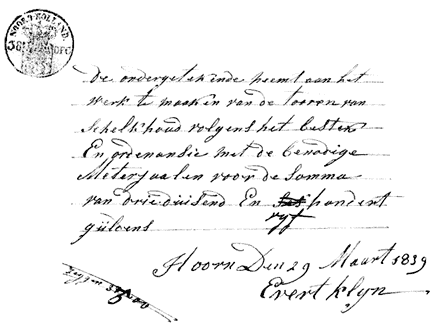 NOORD HOLLAND
De ondergetekende neemt aan het
werk te maaken van de tooren van
Schelkhout volgens het bestek
En ordenansie met de benodige
Meterjaalen voor de somma
van drieduisend En hondert
vyf
guldens
Hoorn Den 29 Maart 1839
Evert Klyn